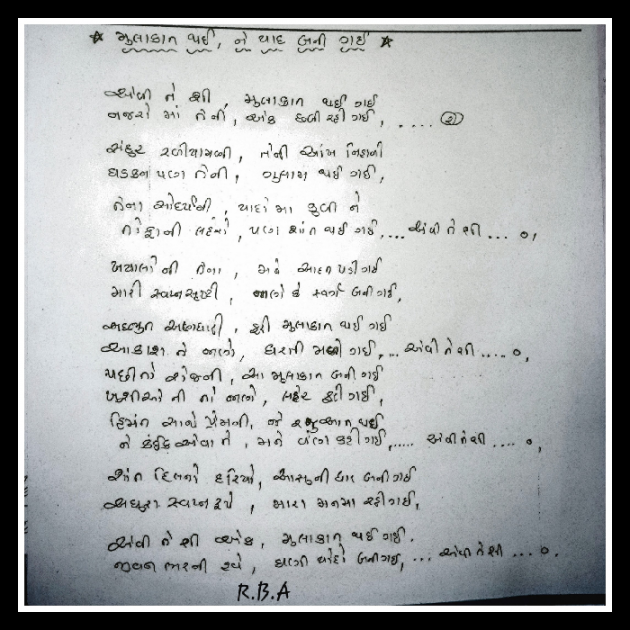 * મુલાકાત થઈ, ને યાદ બની ગઈ *
એવી તે શી, મુલાકાત થઈ ગઈ
નજરો માં તેની, એક છબી રહી ગઈ, .... (૨)
સુંદર રળીયામણી, તેની આંખ નિશાની
ધડકન પણ તેની, ગુલામ થઈ ગઈ,
તેના સૌંદર્યની, યાદો મા ડુબી ને
તોફાની લહેરો, પણ શાંત થઈ ગઈ,... એવી તે શી ... ૦,
ખયાલો ની તેના, મને આદત પડી ગઈ
મારી સ્વપ્નસૃષ્ટી, જાણે કે સ્વર્ગ બની ગઈ,
અદભુત અણધારી, ફરી મુલાકાત થઈ ગઈ
આકાશ ને જાણે, ધરતી મળી ગઈ, ... એવી તે શી ..... ૦,
પછીતો રોજની, આ મુલાકાત બની ગઈ
ખુશીઓ ની તો જાણે, લહેર ફરી ગઈ,
હિંમત આવે પ્રેમની, જો રજુઆત થઈ
ને કંઈક એવા તે, મને કરી ગઈ,..... એવી તે શી .... ૦,
શાંત દિલનો દરિયો, આસુની ધાર બની ગઈ
અધુરા સ્વપ્ન રૂપે, મારા મનમા રહી ગઈ,
એવી તે શી એક, મુલાકાત થઈ ગઈ.
જીવન ભરની રૂપે, ઘણી યાદો બની ગઈ, ... એવી તે શી ... ૦.
R.B.A